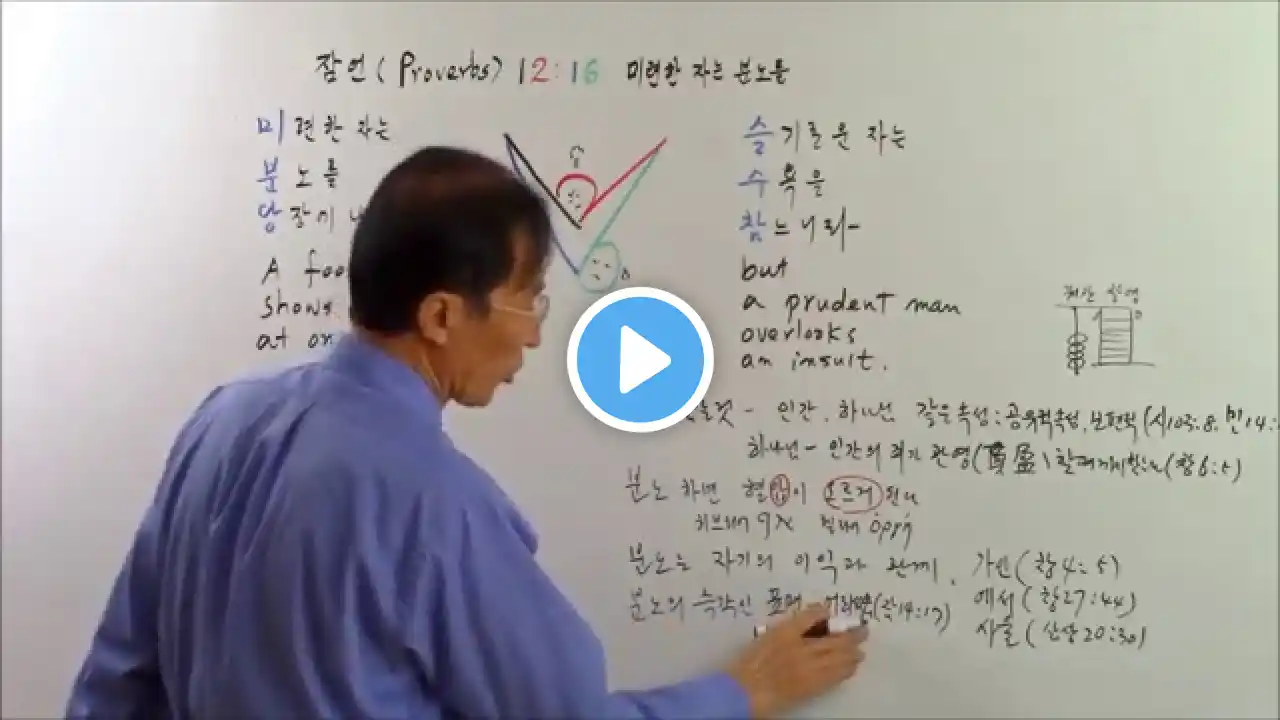 잠언 (Proverbs) 12:16 미련한 자는 분노를
미련한 자는
분노를
당장에
A foo
shows
at on
슬기로운 자는
수욕을
참느니라-
but
a prudent man
overlooks
an insult.
- 인간, 하나님 같은 속성: 공유적속성, 보편적 (시103:8, 민14:
하나님 - 인간의 죄가 관영( (창6:5)
분노하면 혈압이 오르게 된다
히브리어 헬라어
분노는 자기의 이익과 관계, 가인(창4:5)
분노의 즉각인 (잠14:17) 에서(창27:44)
사울(삼상20:30)